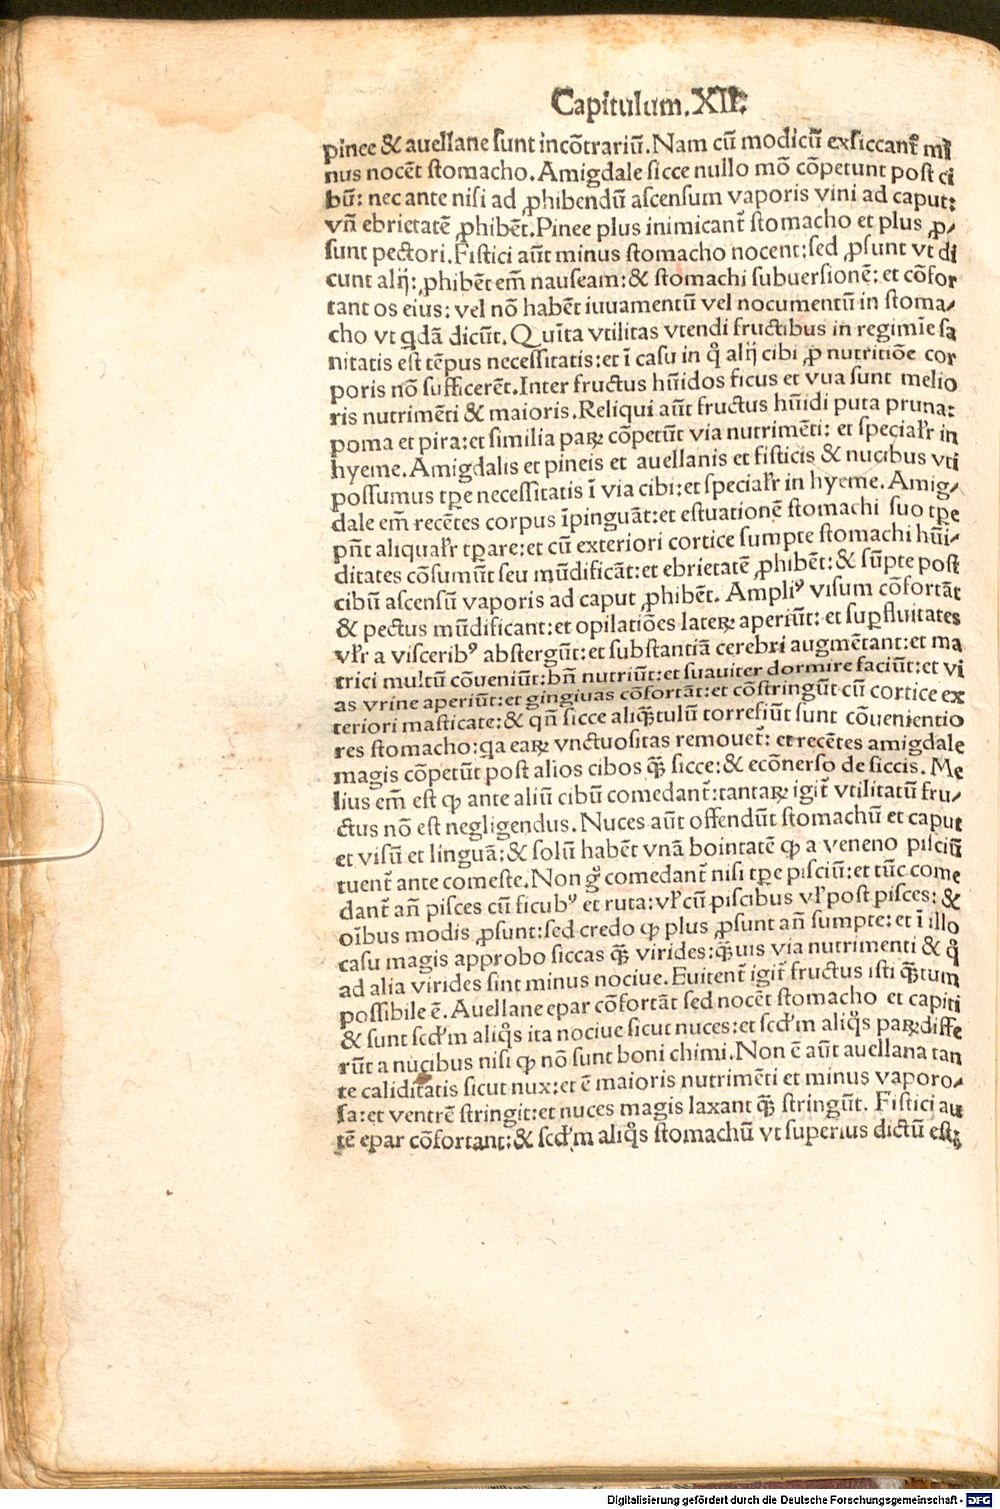 Capitulum.XII.
pinee & auellane sunt incōtrariū. Nam cū modicū exsiccant᷑ mi
nus nocēt stomacho. Amigdale sicce nullo mō cōpetunt post ci
bū: nec ante nisi ad ꝓhibendū ascensum vaporis vini ad caput:
vñ ebrietatē ꝓhibēt. Pinee plus inimicant᷑ stomacho et plus ꝓ/
sunt pectori. Fistici aūt minus stomacho nocent: sed ꝓsunt vt di
cunt alij: ꝓhibēt em̄ nauseam: & stomachi subuersionē: et cōfor
tant os eius: vel nō habēt iuuamentū vel nocumentū in stoma/
cho vt qdā dicūt. Quīta vtilitas vtendi fructibus in regimīe sa
nitatis est tēpus necessitatis: et ī casu in q̊ alij cibi ꝓ nutritiōe cor
poris nō sufficerēt. Inter fructus hūidos ficus et vua sunt melio
ris nutrimēti & maioris. Reliqui aūt fructus hūidi puta pruna:
poma et pira: et similia paꝝ cōpetūt via nutrimēti: et specialr̄ in
hyeme. Amigdalis et pineis et auellanis et fisticis & nucibus vti
possumus tꝑe necessitatis ī via cibi: et specialr̄ in hyeme. Amig/
dale em̄ recētes corpus īpinguāt: et estuationē stomachi suo tꝑe
pn̄t aliqualr̄ tꝑare: et cū exteriori cortice sumpte stomachi hūi/
ditates cōsumūt seu mūdificāt: et ebrietatē ꝓhibēt: & sūpte post
cibū ascensū vaporis ad caput ꝓhibēt. Ampliꝰ visum cōfortāt
& pectus mūdificant: et opilatiōes lateꝝ aperiūt: et suꝑfluitates
vlr̄ a visceribꝰ abstergūt: et substantiā cerebri augmētant: et ma
trici multū cōueniūt: bn̄ nutriūt: et suauiter dormire faciūt: et vi
as vrine aperiūt: et gingiuas cōfortāt: et cōstringūt cū cortice ex
teriori masticate: & qn̄ sicce aliq̄tulū torrefiūt sunt cōuenientio
res stomacho: qa eaꝝ vnctuositas remouet᷑: et recētes amigdale
magis cōpetūt post alios cibos q̄ sicce: & ecōnerso de siccis. Me
lius em̄ est ꝙ ante aliū cibū comedant᷑: tantaꝝ igit᷑ vtilitatū fru/
ctus nō est negligendus. Nuces aūt offendūt stomachū et caput
et visū et linguā: & solū habēt vnā bointatē ꝙ a veneno pisciū
tuent᷑ ante comeste. Non gͦ comedant᷑ nisi tꝑe pisciū: et tūc come
dant᷑ añ pisces cū ficubꝰ et ruta: vl̄ cū piscibus vl̄ post pisces: &
oībus modis ꝓsunt: sed credo ꝙ plus ꝓsunt añ sumpte: et ī illo
casu magis approbo siccas q̄ virides: q̄uis via nutrimenti & q̊
ad alia virides sint minus nociue. Euitent᷑ igit᷑ fructus isti q̄tum
possibile ē. Auellane epar cōfortāt sed nocēt stomacho et capiti
& sunt scd̄m aliq̊s ita nociue sicut nuces: et scd̄m aliq̊s paꝝ diffe
rūt a nucibus nisi ꝙ nō sunt boni chimi. Non ē aūt auellana tan
te caliditatis sicut nux: et ē maioris nutrimēti et minus vaporo/
sa: et ventrē stringit: et nuces magis laxant q̄ stringūt. Fistici au
tē epar cōfortant: & scd̄m aliq̊s stomachū vt superius dictū est:
Digitalisierung gefördert durch die Deutsche Forschungsgemeinschaft - DFG